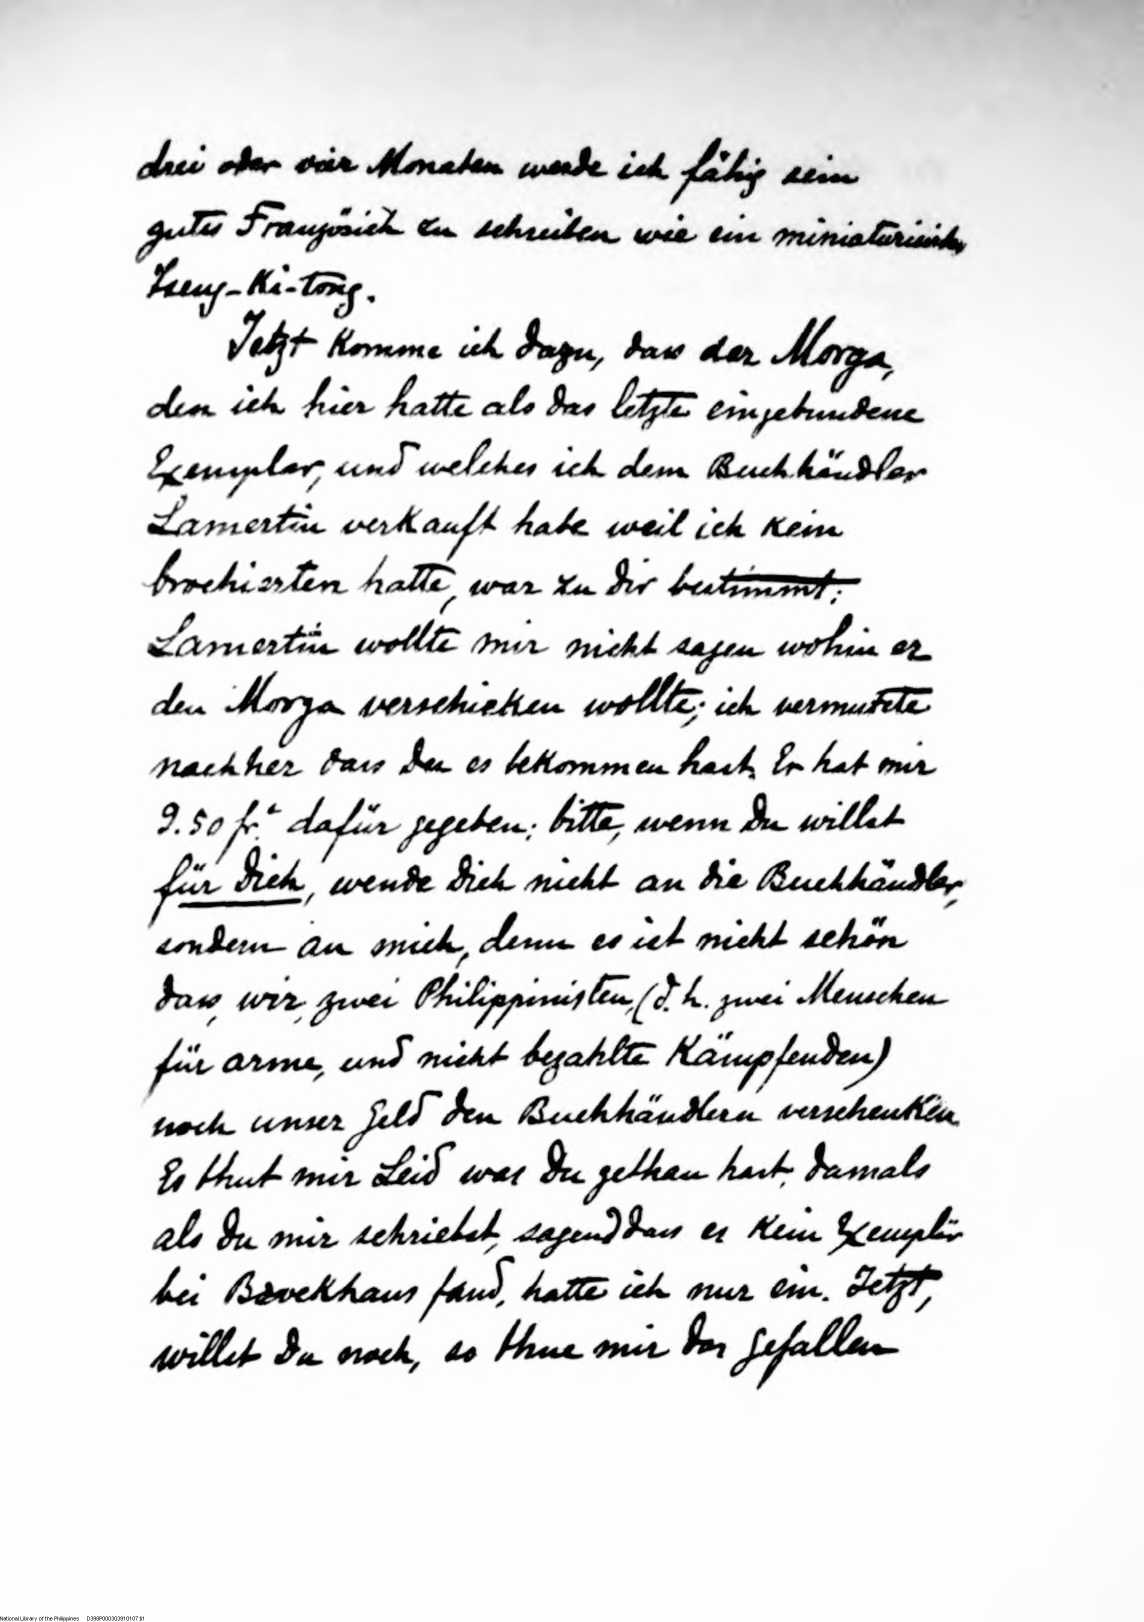 drei oder vier Monaten werde ich fähig sein
gutes Französich zu schreiben wie ein
Tseng-Ki-tong.
Jetzt komme ich dazu, dass der Morga,
den ich hier hatte als das letzte eingebundene
Exemplar, und welches ich dem Buchhändler
Lamertin verkauft habe weil ich kein
brochierten hatte, war zu dir bestimmt;
Lamertin wollte mir nicht sagen wohin er
den Morga verschicken wollte; ich vermutete
nachher dass Du es bekommen hast. Er hat mir
9.50 fr.s dafür gegeben; bitte, wenn Du willst
für Dich, wende Dich nicht an die Buchhändler,
sondern an mich, denn es ist nicht schön
dass, wir, zwei Philippinisten, (d. h. zwei Menschen
für arme, und nicht bezahlte Kämpfenden)
noch unser Geld den Buchhändlern verschenken.
Es thut mir Leid was Du gethan hast, damals
als Du mir schriebst, sagend dass es kein Exemplär
bei Brockhaus fand, hatte ich nur ein. Jetzt,
willst Du noch, so thue mir das Gefallen
National Library of the Philippines